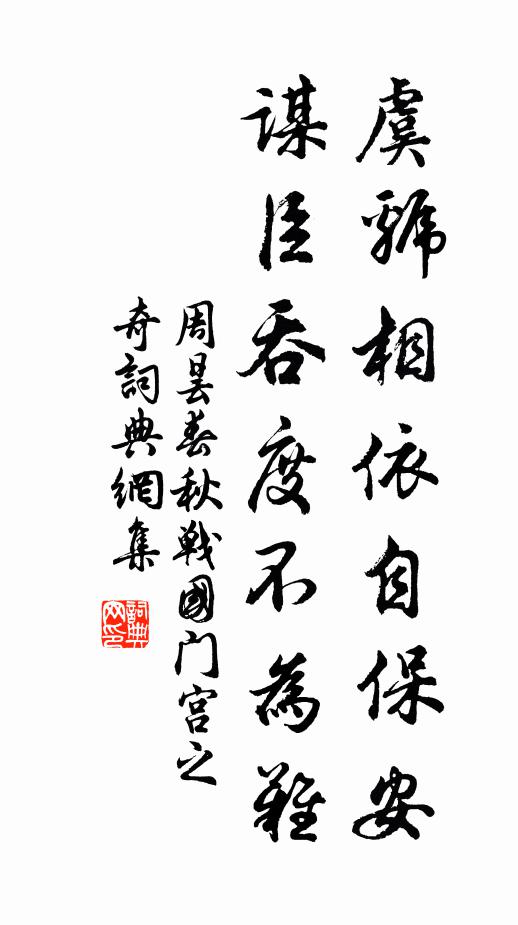 虞虢相依自保安
謀臣吞度不為難
周昙春秋戰國门宫之
奇詞典網集
詞典
网印